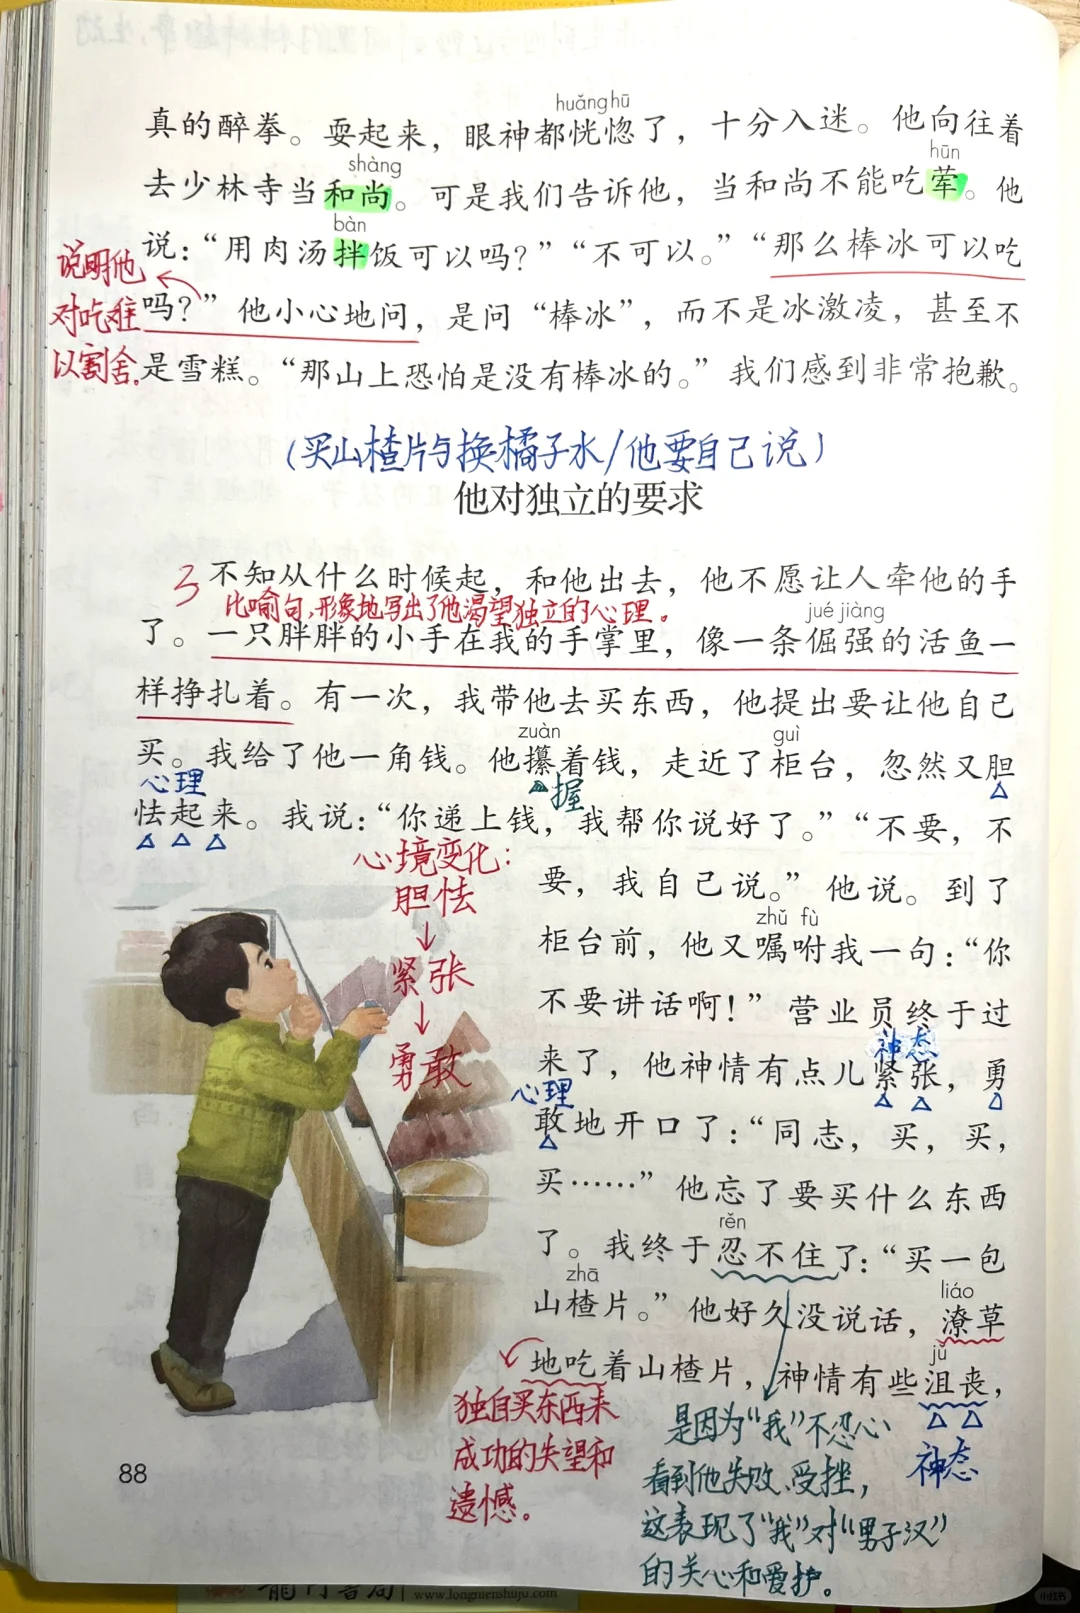 huǎng hū
真的醉拳。耍起来，眼神都恍惚了，十分入迷。他向往着
shàng
hūn
去少林寺当和尚。可是我们告诉他，当和尚不能吃荤。他
bàn
说：“用肉汤拌饭可以吗？”“不可以。”“那么棒冰可以吃
吗？”他小心地问，是问“棒冰”，而不是冰激凌，甚至不
是雪糕。“那山上恐怕是没有棒冰的。”我们感到非常抱歉。
说明他
对吃难
以割舍。
（买山楂片与换橘子水/他要自己说）
他对独立的要求
3
不知从什么时候起，和他出去，他不愿让人牵他的手
比喻句，形象地写出了他渴望独立的心理。
jué jiàng
了。一只胖胖的小手在我的手掌里，像一条倔强的活鱼一
样挣扎着。有一次，我带他去买东西，他提出要让他自己
zuàn
guì
买。我给了他一角钱。他攥着钱，走近了柜台，忽然又胆
心理
握
怯起来。我说：“你递上钱，我帮你说好了。”“不要，不
要，我自己说。”他说。到了
zhǔ fù
柜台前，他又嘱咐我一句：“你
不要讲话啊！”营业员终于过
神态
来了，他神情有点儿紧张，勇
心理
敢地开口了：“同志，买，买，
买……”他忘了要买什么东西
rěn
了。我终于忍不住了：“买一包
zhā
liáo
山楂片。”他好久没说话，潦草
jǔ
地吃着山楂片，神情有些沮丧，
心境变化：
胆怯
↓
紧张
↓
勇敢
独自买东西未
成功的失望和
遗憾。
是因为“我”不忍心
看到他失败、受挫，
这表现了“我”对“男子汉”
的关心和爱护。
神态
88
龍门書局
www.longmenshuju.com
小红书